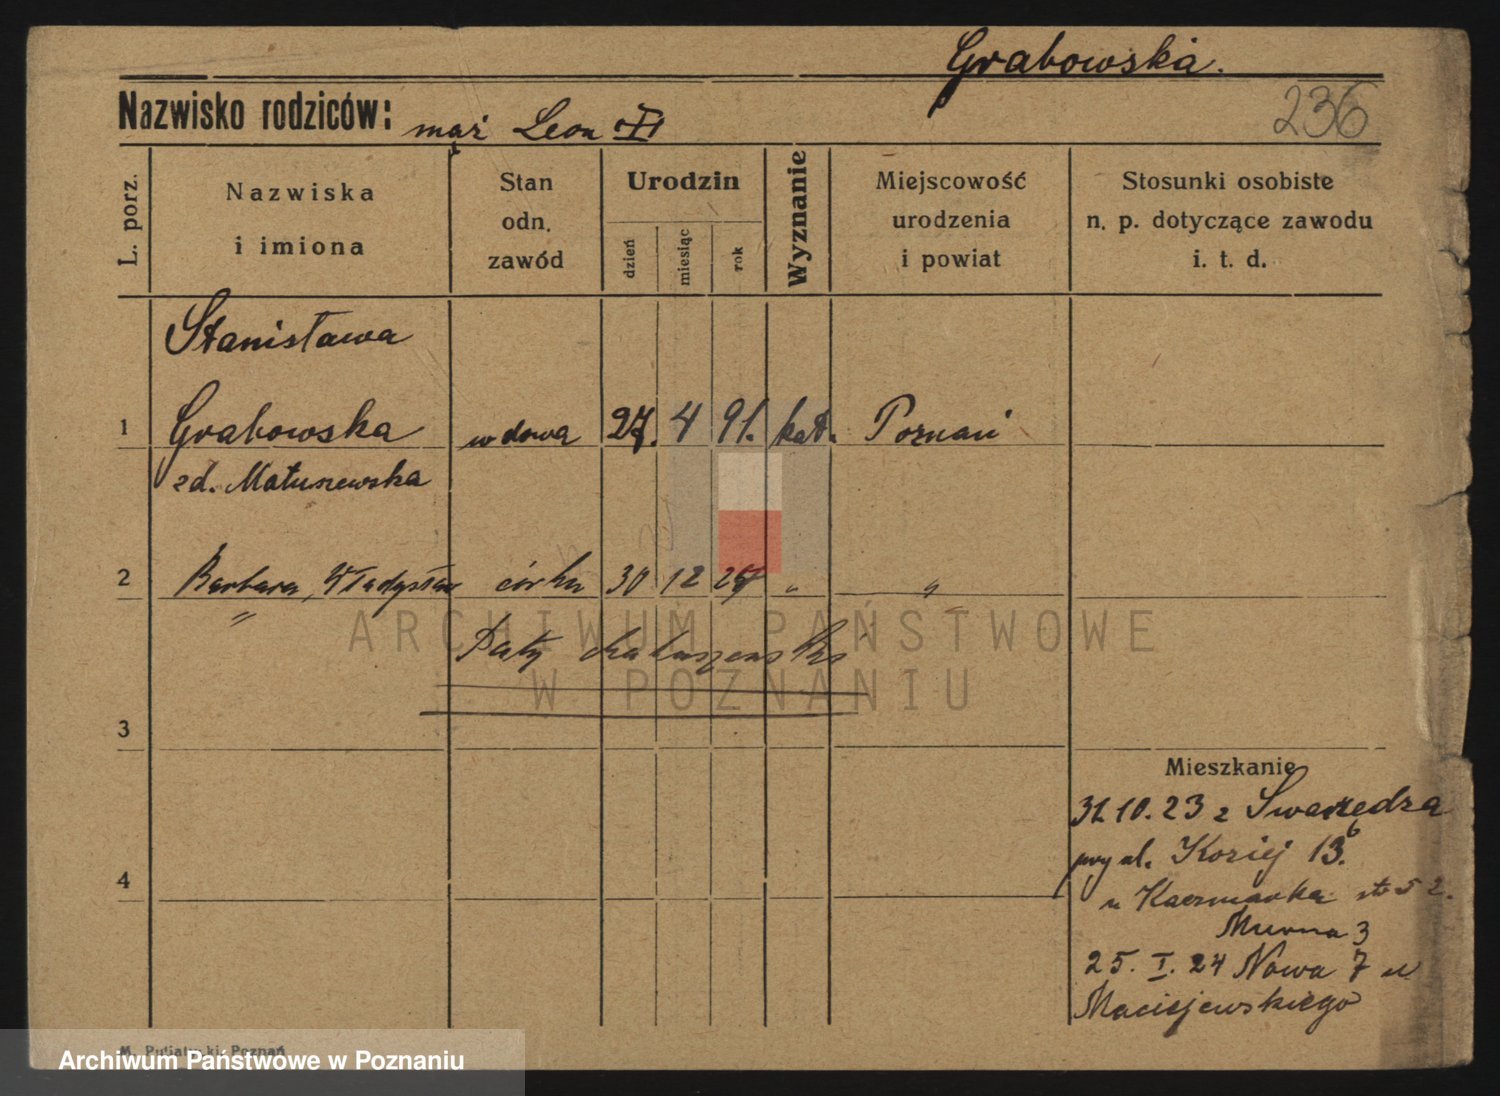 Grabowska.
236
Nazwisko rodziców: mąż Leon
L. porz.
Nazwiska i imiona
Stan odn. zawód
Urodzin
dzień miesiąc rok
Wyznanie
Miejscowość urodzenia i powiat
Stosunki osobiste n. p. dotyczące zawodu i. t. d.
Stanisława
1 Grabowska wdowa 27. 4 91. kat. Poznań
zd. Matuszewska
2 Barbara, córka 30 12 " "
"
3
4
Mieszkanie
31.10.23 z Swarzędza
przy ul. Koziej 13.
u Kaczmarka
Murna 3
25. I. 24 Nowa 7 u
Maciejewskiego
ARCHIWUM PAŃSTWOWE
W POZNANIU
Poznań
Archiwum Państwowe w Poznaniu